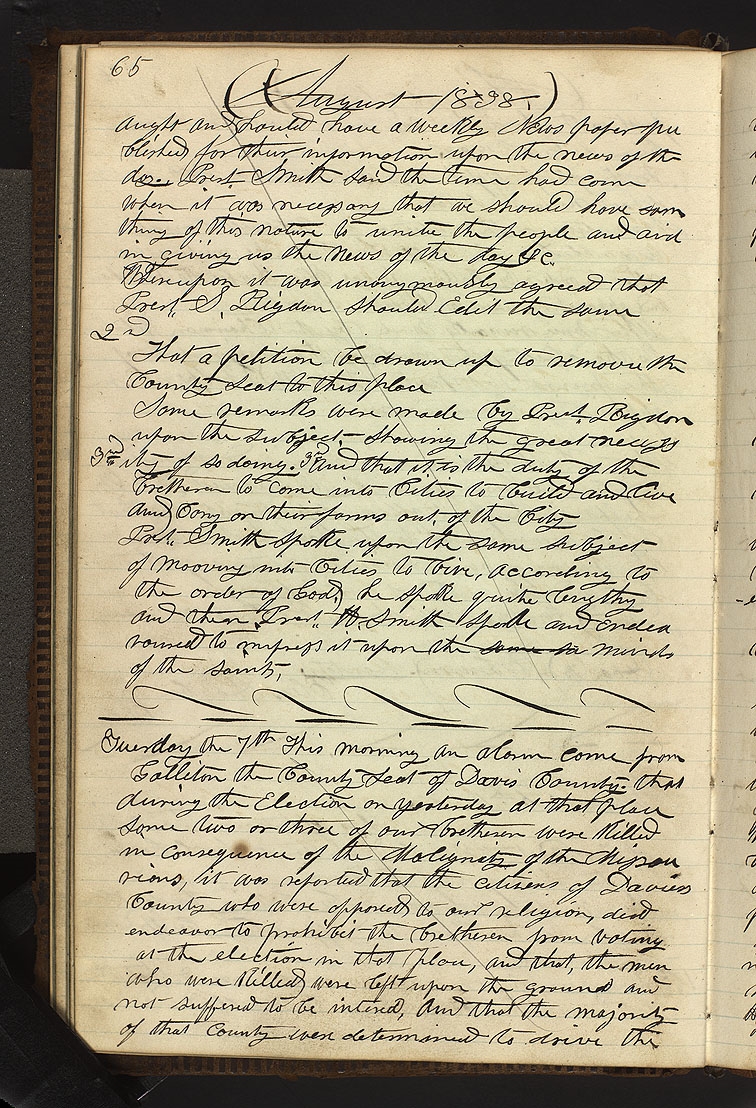 65
(August 1838.)
aught and should have a weekly News paper pu
blished for their information upon the news of the
day. Prest. Smith said the time had come
when it was necessary that we should have som
thing of this nature to unite the people and aid
in giving us the news of the day &c.
Thereupon it was unanymously agreed that
Prest. S. Rigdon should Edit the same
2nd
That a petition be drawn up to remove the
County seat to this place
Some remarks were made by Prest. Rigdon
upon the subject, showing the great necess
3rd ity of so doing. 3rd And that it is the duty of the
bretheren to come into Cities to build and live
and Carry on their farms out of the City
Prest. Smith spoke upon the same subject
of mooving into Cities to live, according to
the order of God, he spoke quite lengthy
and then Prest. H. Smith spoke and endea
voured to impress it upon the same su minds
of the saints,
Tuesday the 7th This morning an alarm come from
Galliton the County Seat of Davis County, that
during the Election on yesterday at that place
some two or three of our bretheren were killed
in consequence of the Malignity of the Missou
rians, it was reported that the citizens of Daviess
County who were opposed to our religion, did
endeavor to prohibit the bretheren from voting
at the election in that place, and that, the men
who were killed were left upon the ground and
not suffered to be interred, And that the majority
of that County were determined to drive the